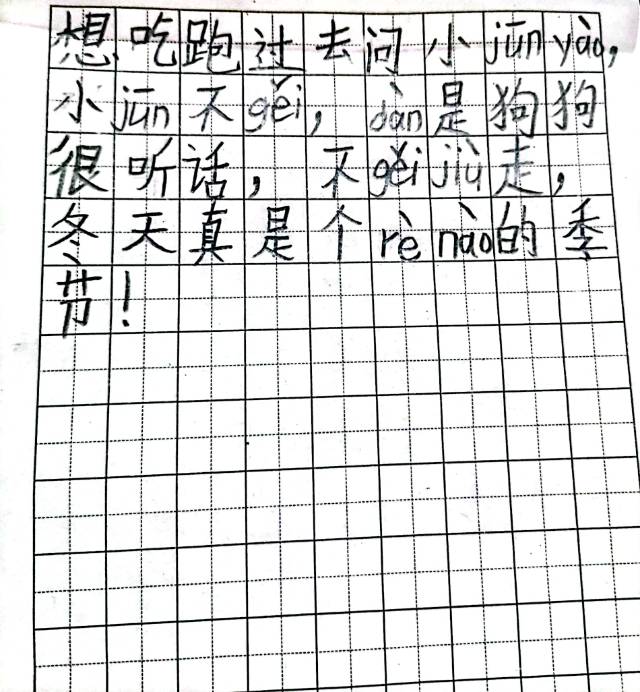 想吃跑过去问小jūnyào,
小jūn不gěi，dàn是狗狗
很听话，不gěijiù走，
冬天真是个rènào的季
节！